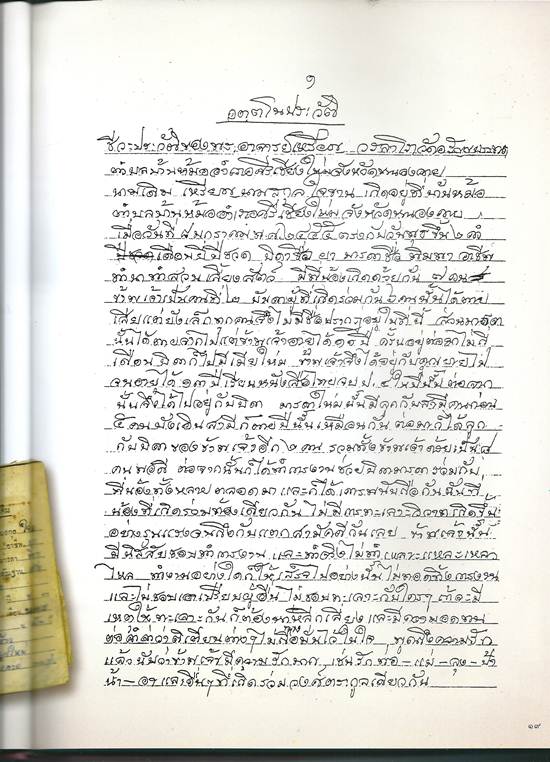 ๑
อตฺตโนประวัติ
ชีวะประวัติของพระอาจารย์เหรียญ วรลาโภ วัดอรัญบรรพต
ตำบลบ้านหม้อ อำเภอศรีเชียงใหม่ จังหวัดหนองคาย
นามเดิม เหรียญ นามสกุล ใจขาน เกิดอยู่ที่บ้านหม้อ
ตำบลบ้านหม้อ อำเภอศรีเชียงใหม่ จังหวัดหนองคาย
เมื่อวันที่ ๘ มกราคม พ.ศ. ๒๔๕๕ ตรงกับวันพุธ ขึ้น ๒ ค่ำ
เดือนยี่ ปีชวด บิดาชื่อ ผา มารดาชื่อ พิมพา อาชีพ
ทำนาทำสวนเลี้ยงสัตว์ มีพี่น้องเกิดด้วยกัน ๗ คน
ข้าพเจ้าเป็นคนที่ ๒ บันดาผู้ที่เกิดร่วมกัน ๖ คนนั้นได้ตาย
เสียแต่ยังเล็กทุกคนจึงไม่มีชื่อปรากฏอยู่ในที่นี้ ส่วนมารดา
นั้นได้ตายจากไปแต่ข้าพเจ้าอายุได้ ๑๐ ปี ครั้นอยู่ต่อมาไม่กี่
เดือนบิดาก็ไปมีเมียใหม่ ข้าพเจ้าจึงได้อยู่กับคุณยายไป
จนอายุได้ ๑๓ ปี เรียนหนังสือไทยจบ ป. ๔ ในปีนั้น ต่อมา
นั้นจึงได้ไปอยู่กับบิดา มารดาใหม่นั้นมีลูกกับสามีคนก่อน
๕ คน สามีก็ตายปีนั้นเหมือนกัน ต่อมาก็ได้ลูก
กับบิดาของข้าพเจ้าอีก ๒ คน รวมทั้งข้าพเจ้าด้วยเป็น ๘
คนพอดี ต่อจากนั้นก็ได้ทำการงานช่วยบิดามารดาร่วมกับ
พี่น้องทั้งหลายตลอดมา และก็ได้เคารพนับถือกันฉันพี่
น้องที่เกิดร่วมท้องเดียวกัน ไม่มีการทะเลาะวิวาทเกิดขึ้น
อย่างรุนแรงจนถึงกับแตกสามัคคีกันเลย ข้าพเจ้านั้น
มีนิสัยชอบทำการงาน และทำจริงไม่ทำเหลาะแหละเหลว
ไหล ทำงานอย่างใดก็ให้เสร็จไปอย่างนั้น ไม่ทอดทิ้งการงาน
และไม่ชอบเอาเปรียบผู้อื่น ไม่ชอบทะเลาะกับใครๆ ถ้าจะมี
เหตุให้ทะเลาะกันก็ต้องหาหลีกเลี่ยง และมีความอดทน
ต่อคำด่าว่าติเตียนต่างๆ ไม่ถือมั่นไว้ในใจ พูดถึงความรัก
แล้วนับว่าข้าพเจ้ามีความรักมาก เช่นรักพ่อ-แม่-ลุง-ป้า
น้า-อา และอื่นๆ ที่เกิดร่วมวงศ์ตระกูลเดียวกัน
๑๗